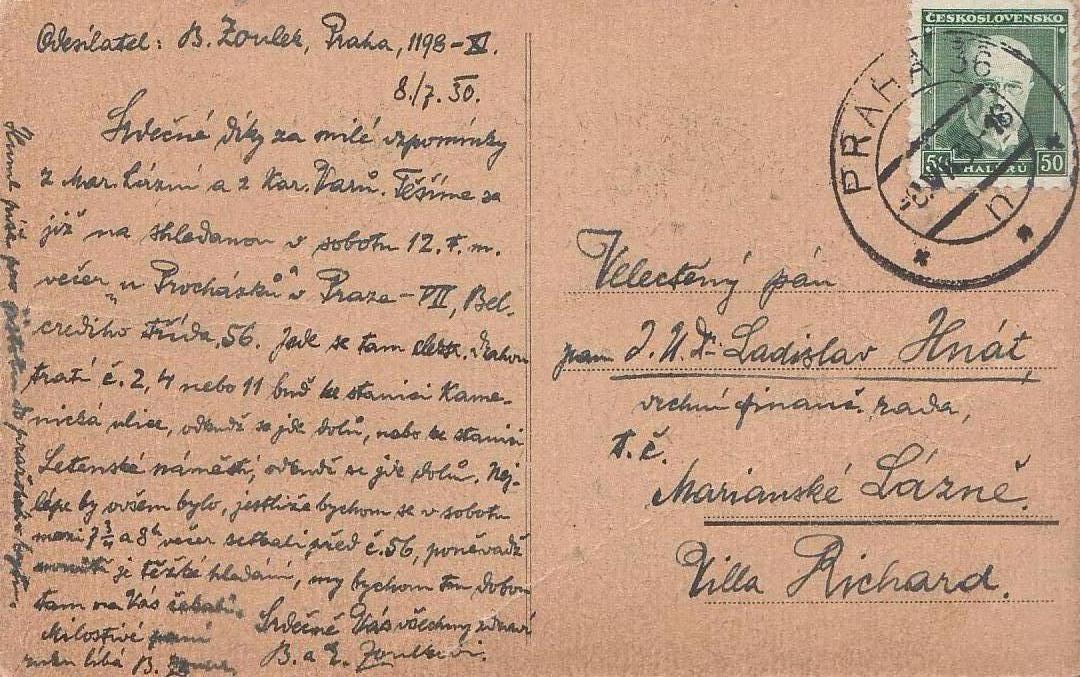 Odesílatel: B. Zoulek, Praha, 1198-XI.
8./7. 30.
Srdečné díky za milé vzpomínky
z Mar. Lázní a z Kar. Varů. Těšíme se
již na shledanou v sobotu 12. t. m.
večer „u Procházků" v Praze-VII, Bel-
crediho třída, 56. Jede se tam elektr. drahou
tratí č. 2, 4 nebo 11 buď ke stanici Kame-
nická ulice, odkudž se jde dolů, nebo ke stanici
Letenské náměstí, odkudž se jde dolů. Nej-
lépe by ovšem bylo, jestliže bychom se v sobotu
mezi 7 3/4 a 8h večer setkali před č. 56, poněvadž
uvnitř je těžké hledání, my bychom tu dobou
tam na Vás čekali.
Srdečně Vás všechny zdraví
B. a E. Zoulkovi.
Milostivé paní
ruku líbá B. Zoulek.
píše pro do
ČESKOSLOVENSKO
50 HALÉŘŮ 50
PRAHA 36
n
Velectěný pán
pan J. U. Dr. Ladislav Hnát,
vrchní finanč. rada,
t. č.
Marianské Lázně.
Villa Richard.